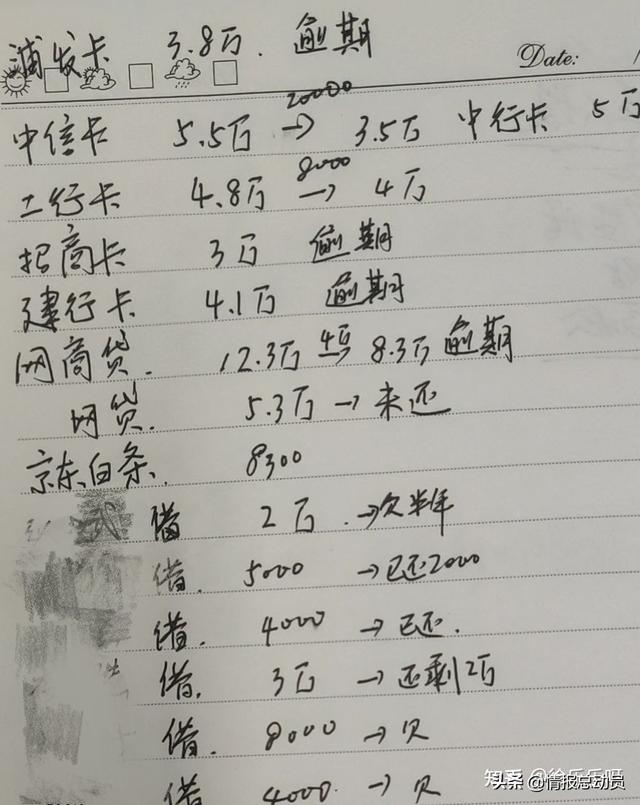 浦发卡 3.8万. 逾期
Date: 1
中信卡 5.5万 20000→ 3.5万 中行卡 5万
工行卡 4.8万 8000→ 4万
招商卡 3万 逾期
建行卡 4.1万 逾期
网商贷. 12.3万 8.3万 逾期
网贷. 5.3万→未还
京东白条. 8300
借 2万 →欠半年
借. 5000 →已还2000
借. 4000 →已还.
借. 3万 →还剩2万
借. 8000 →欠
借 4000. →欠
知乎 @徐兵兵呀
头条 @情报总动员